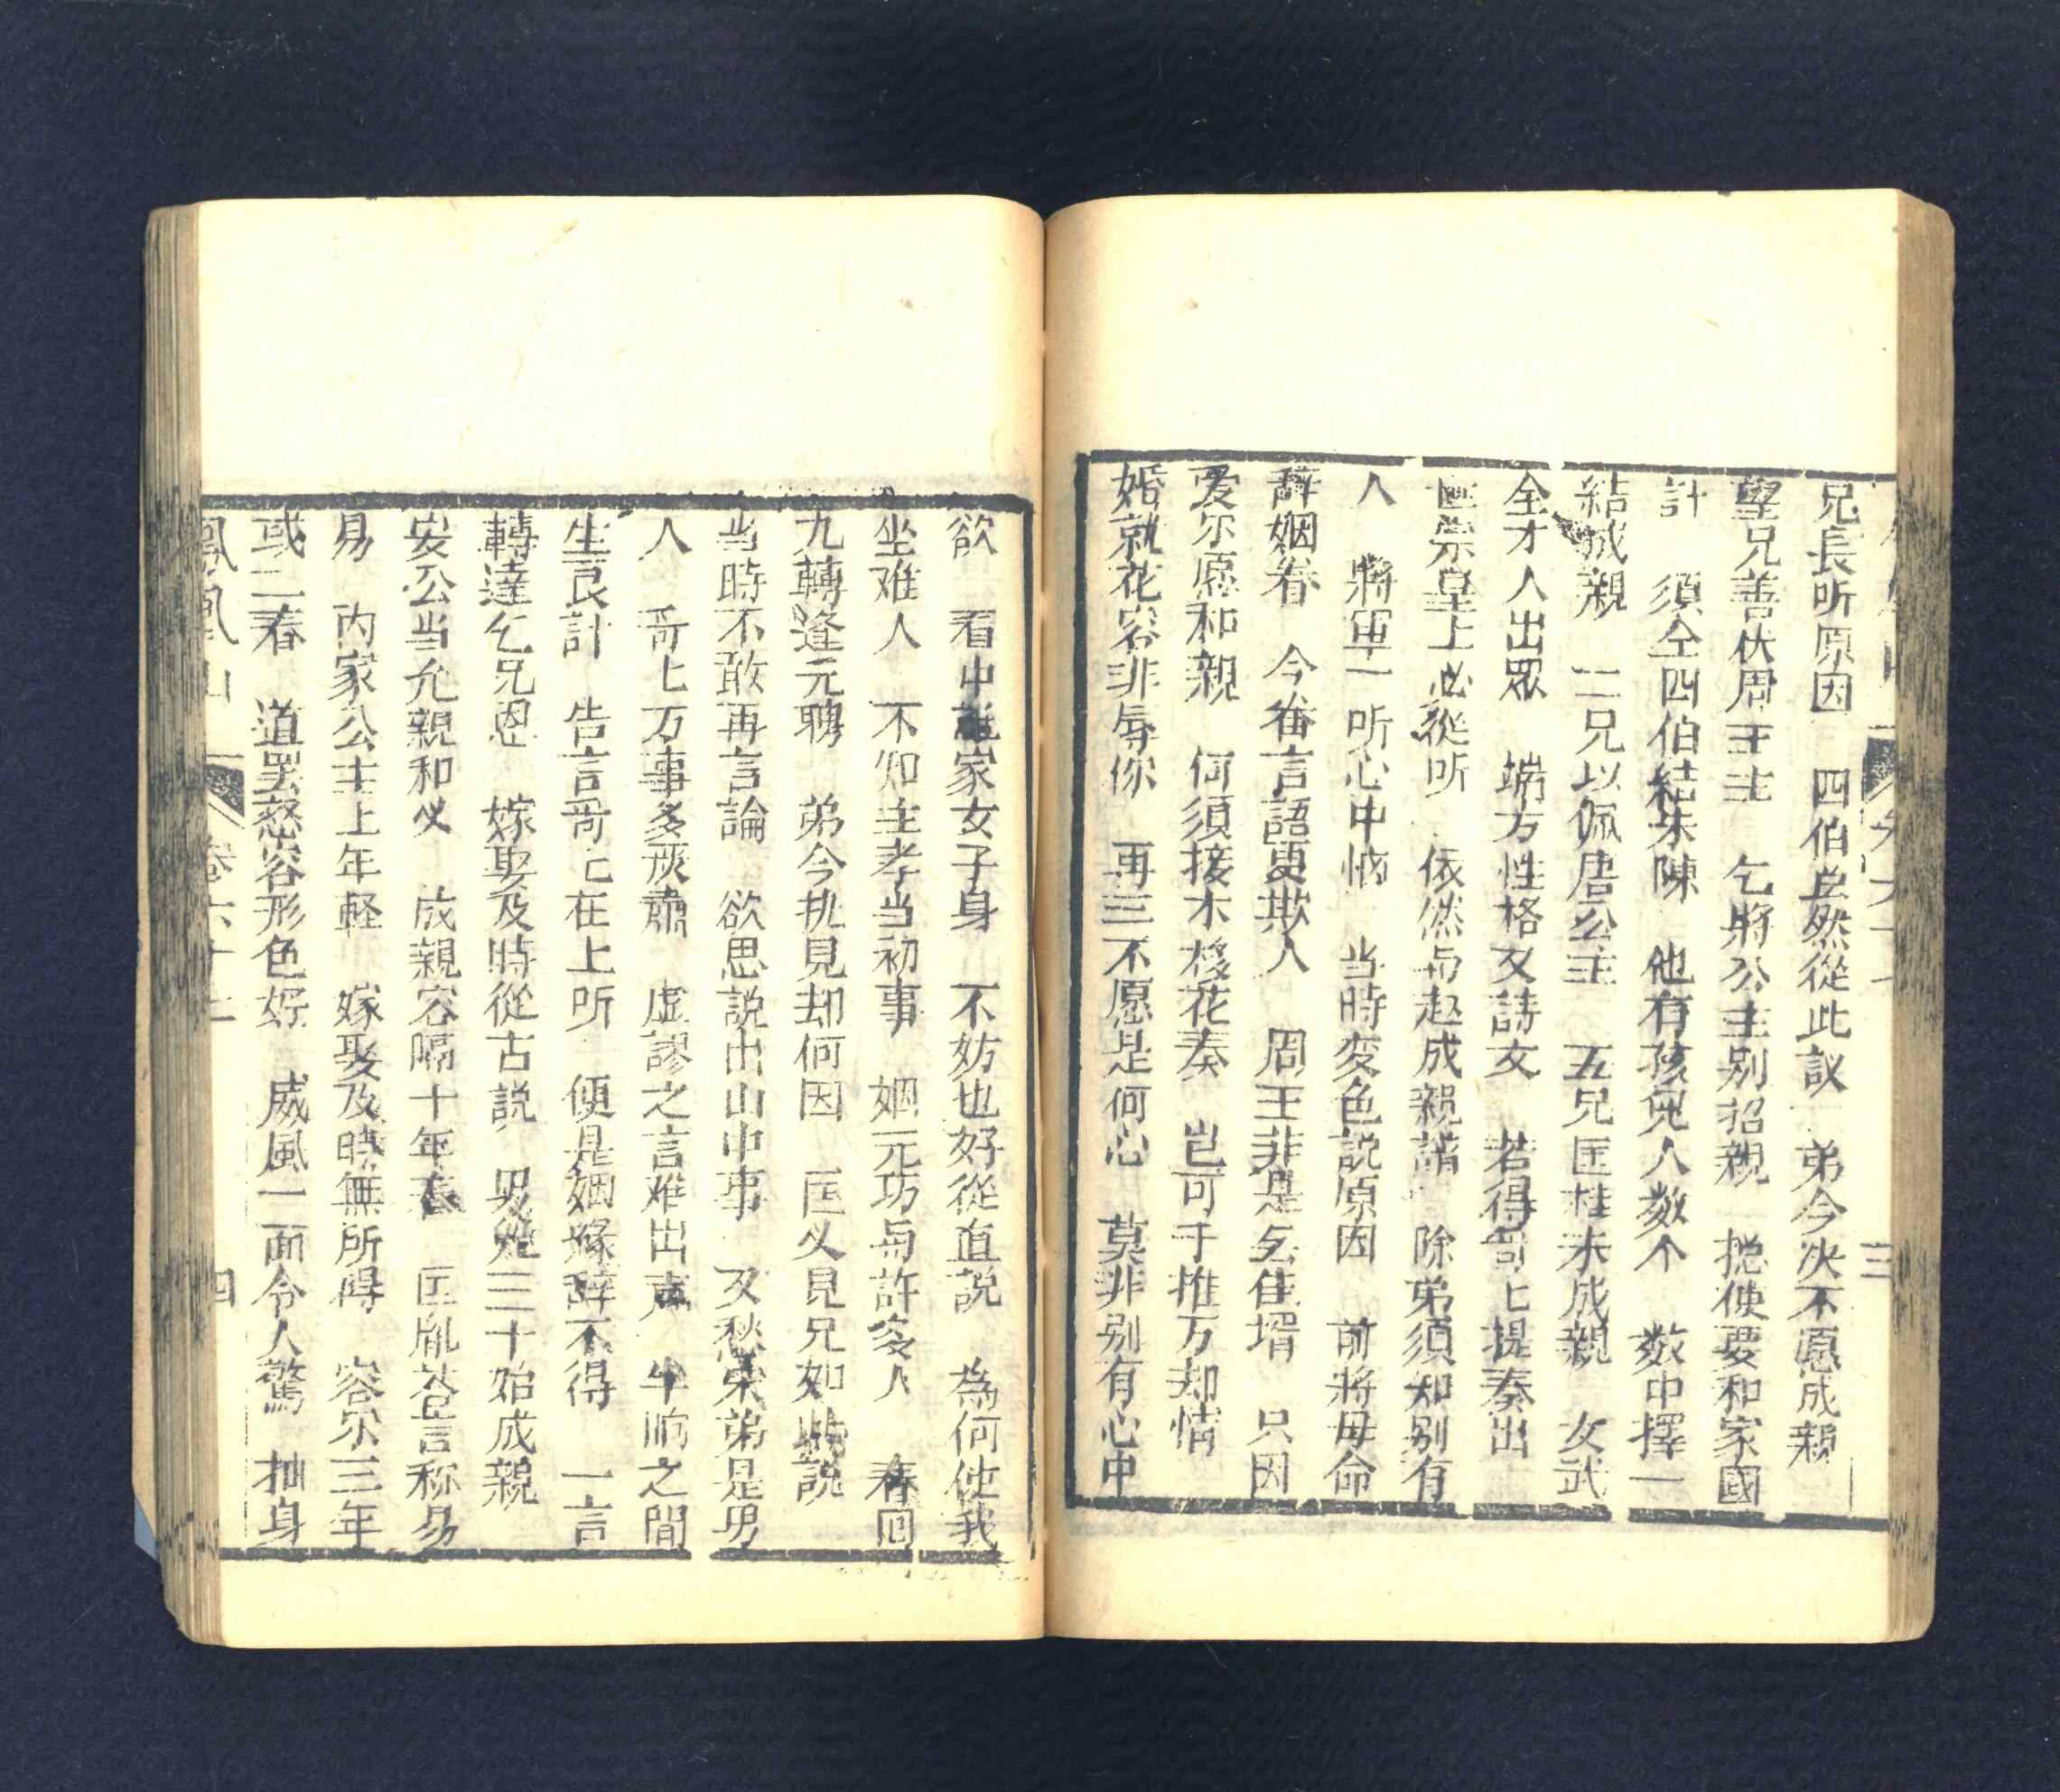 兄長听原因　四伯豈然從此議　弟今决不愿成親
望兄善伏周王主　乞將公主别招親　揔使要和家國
計　須仝四伯結朱陳　他有孩兒人数个　数中擇一
結成親　二兄以佩唐公主　五兄匡桂未成親　女武
全才人出眾　端方性格又詩文　若得哥匕提奏出
世崇皇上必從听　依然与起成親誼　除弟須知别有
人　將軍一听心中恼　当時变色説原因　前將母命
辞姻眷　今畨言語更欺人　周王非是乞佳壻　只因
爱尔愿和親　何須接木移花奏　岂可千推万却情
婚就花容非辱你　再三不愿是何心　莫非别有心中
欲　看中誰家女子身　不妨也好從直説　為何使我
坐难人　不知主孝当初事　姻元巧与許多人　春囘
九轉逢元聘　弟今执見却何因　匡义見兄如此説
当時不敢再言論　欲思説出山中事　又愁榮弟是男
人　哥匕万事多灰肅　虛謬之言难出声　半晌之間
生良計　告言哥匕在上听　便是姻縁辞不得　一言
轉達乞兄恩　嫁娶及時從古説　男兒三十始成親
安公当允親和义　成親容隔十年春　匡胤荅言称易
易　内家公主上年軽　嫁娶及時無所得　容尔三年
或二春　道罢怒容形色好　威風一面令人驚　抽身
鳳凰山　卷六十七　四